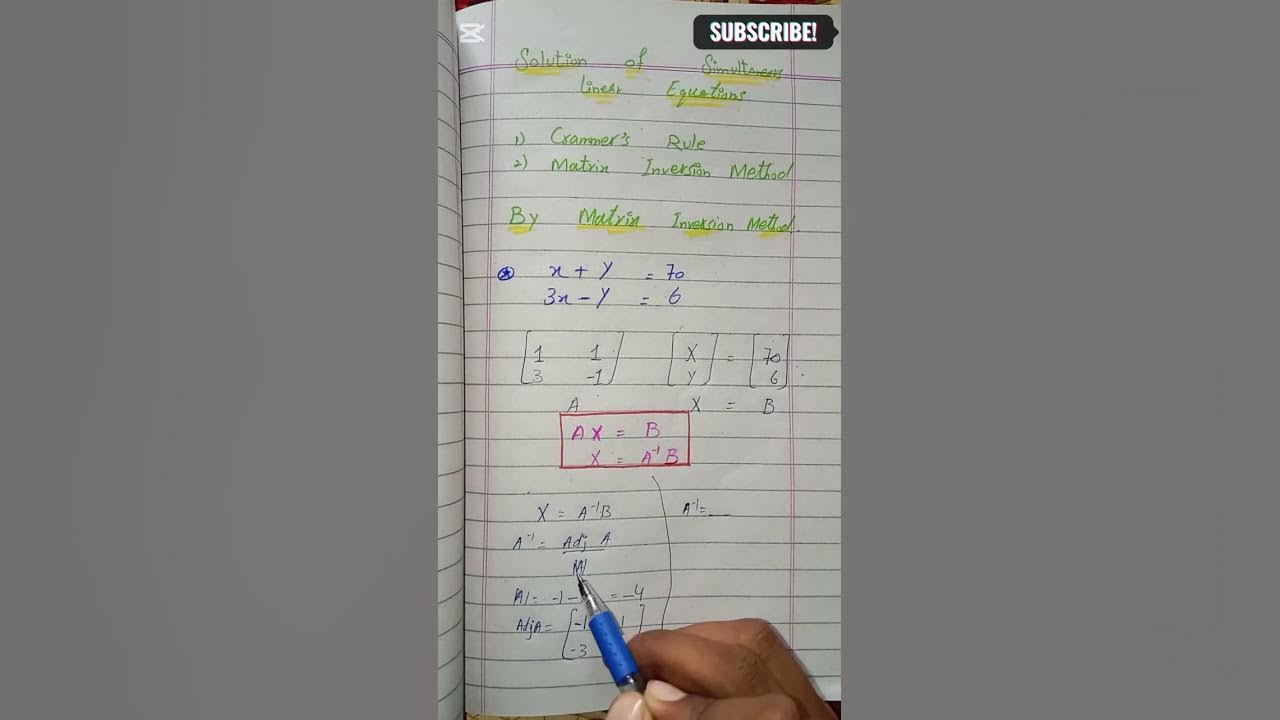 SUBSCRIBE!
Solution of Simultaneous
Linear Equations
1) Crammer's Rule
2) Matrix Inversion Method
By Matrix Inversion Method.
x + y = 70
3x - y = 6
[1 1] [X] = [70]
[3 -1] [Y] [6]
A X = B
AX = B
X = A⁻¹B
X = A⁻¹B
A⁻¹ = __
A⁻¹ = Adj A
|A|
|A| = -1 - = -4
Adj A = [-1 1]
[-3